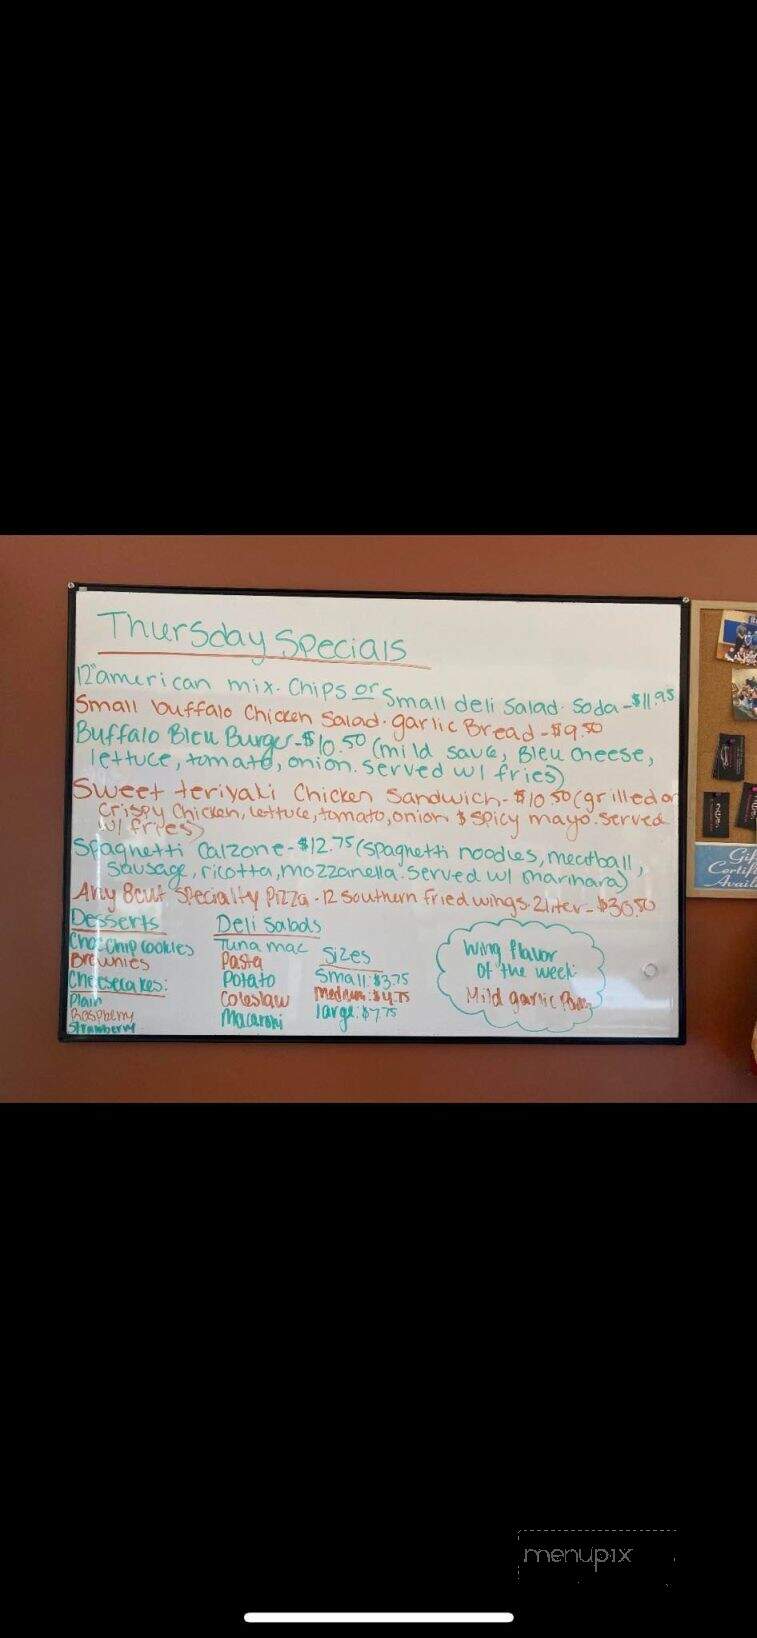 Thursday Specials
12" american mix. Chips or Small deli Salad. Soda - $11.95
Small buffalo Chicken Salad. garlic Bread - $9.50
Buffalo Bleu Burger - $10.50 (mild sauce, Bleu cheese,
lettuce, tomato, onion. served w/ fries)
Sweet teriyaki Chicken Sandwich. $10.50 (grilled or
crispy Chicken, lettuce, tomato, onion & spicy mayo. served
w/ fries)
Spaghetti Calzone - $12.75 (spaghetti noodles, meatball,
sausage, ricotta, mozzanella. Served w/ marinara)
Any 8cut Specialty Pizza. 12 Southern fried wings. 2liter - $30.50
Desserts
Choc Chip cookies
Brownies
Cheesecakes:
Plain
Raspberry
Strawberry
Deli Salads
Tuna mac
Pasta
Potato
Coleslaw
Macaroni
Sizes
Small: $3.75
medium: $4.75
large: $7.75
Wing flavor
of the week:
Mild garlic
Gif
Certif
Avail
menupix